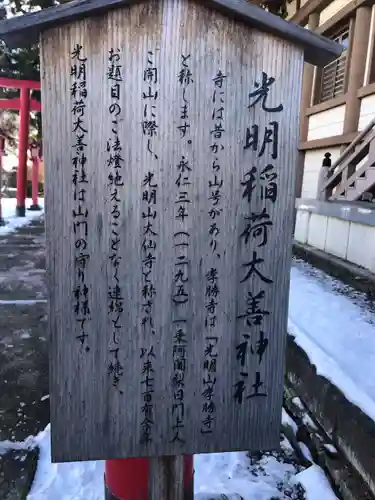 光明稲荷大善神社
寺には昔から山号があり、孝勝寺は「光明山孝勝寺」
と称します。永仁三年(一二九五)一乗阿闍梨日門上人
ご開山に際し、光明山大仙寺と称され、以来七百有余年
お題目のご法燈絶えることなく連綿として続き、
光明稲荷大善神社は山門の守り神様です。